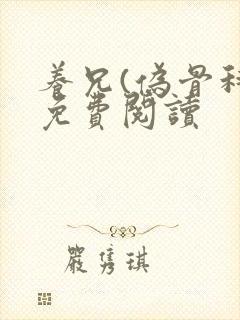 養兄(偽骨科
免費閱讀
嚴雋琪